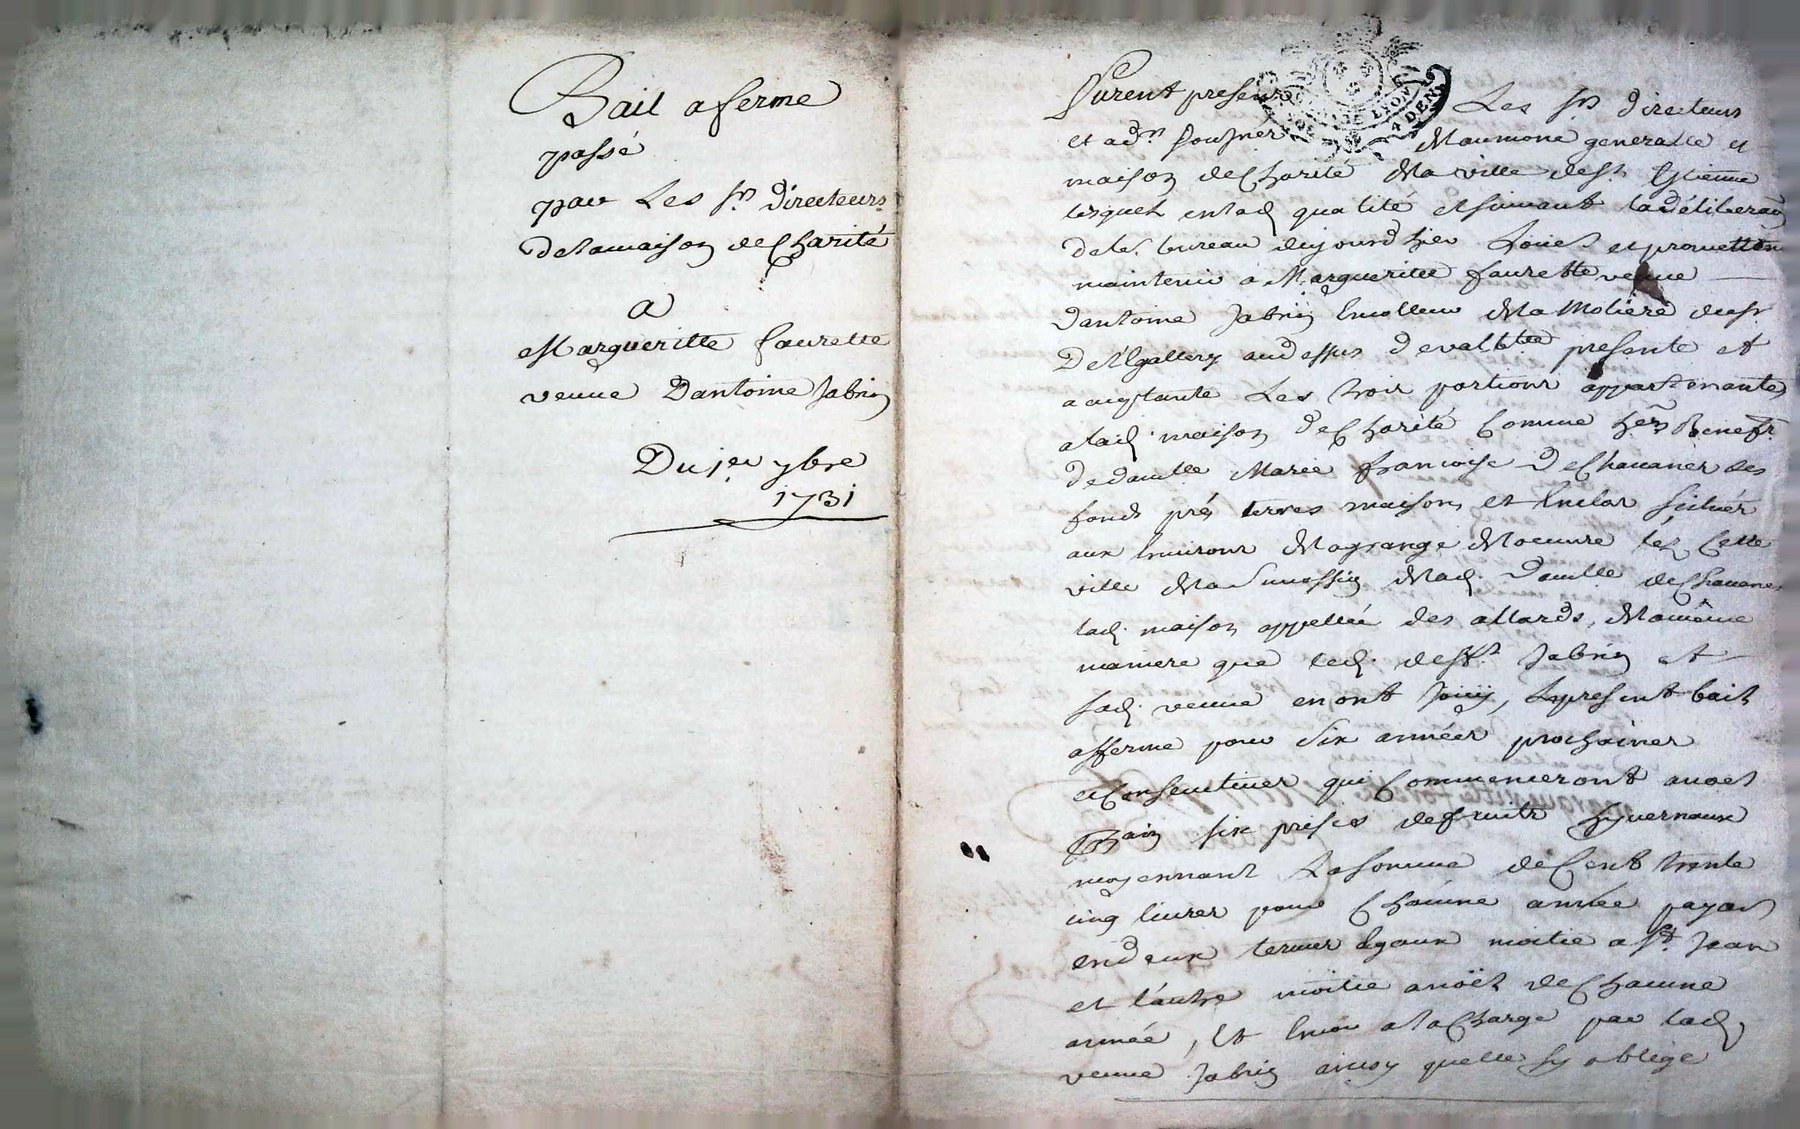 Bail a ferme
passé
par Les srs directeurs
de la maison de Charité
a
Margueritte faurette
veuve Dantoine Jabrin
Du 1er 7bre
1731
LYON
4 DEN
furent presens Les srs directeurs
et adrn de l'aumone generalle et
maison de Charité de la ville de st Estienne
lesquels en lad qualité et suivant la déliberaon
de le bureau dujourdhier Louent et prometton
maintenir a Margueritte faurette veuve
dantoine Jabrin de la Moliere
au dessus presente et
aceptante Les trois portions appartenantes
a lad. maison de Charité Comme hers Benefr.
de damlle Marie francoise de Chavanes des
fonds prés terres maisons et Enclos scitués
aux Environs lez Cette
ville de la Succession de lad. damlle de Chavanes
lad. maison appellée des allards, de la même
maniere que led. deft. Jabrin et
sad. veuve en ont Jouy, Le present bail
afferme pour six années prochaines
et Consecutives qui Commenceront a noel
six prises de fruits hyvernaux
moyennant La somme de Cent trente
cinq livres pour Chacune année payab
en deux termes Egaux moitié a st. Jean
et l'autre moitié a noël de Chacune
année, Et a la Charge par lad.
veuve Jabrin ainsy quelle sy oblige